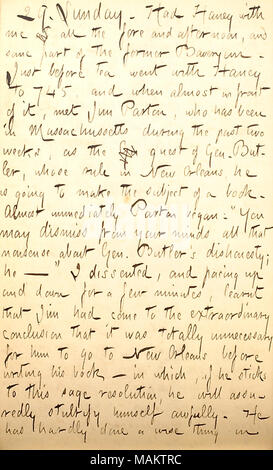 29. Sunday. Had Haney with
me all the fore and afternoon, and
some part of the former Bavorgun.
Just before tea went with Haney
to 745, and when almost in front
of it, met Jim Parton, who has been
in Massachusetts during the past two
weeks, as the guest of Gen. But-
ler, whose rule in New Orleans, he
is going to make the subject of a book.
Almost immediately Parton began. "You
may dismiss from your minds all that
nonsense about Gen. Butler's dishonesty;
he — " I dissented, and pacing up
and down for a few minutes, learnt
that Jim had come to the extraordinary
conclusion that it was totally unnecessary
for him to go to New Orleans before
writing his book — in which, if he sticks
to this sage resolution, he will assu-
redly stultify himself awfully. He
has hardly done a wise thing in
alamy
Image ID: MAKTRC
www.alamy.com